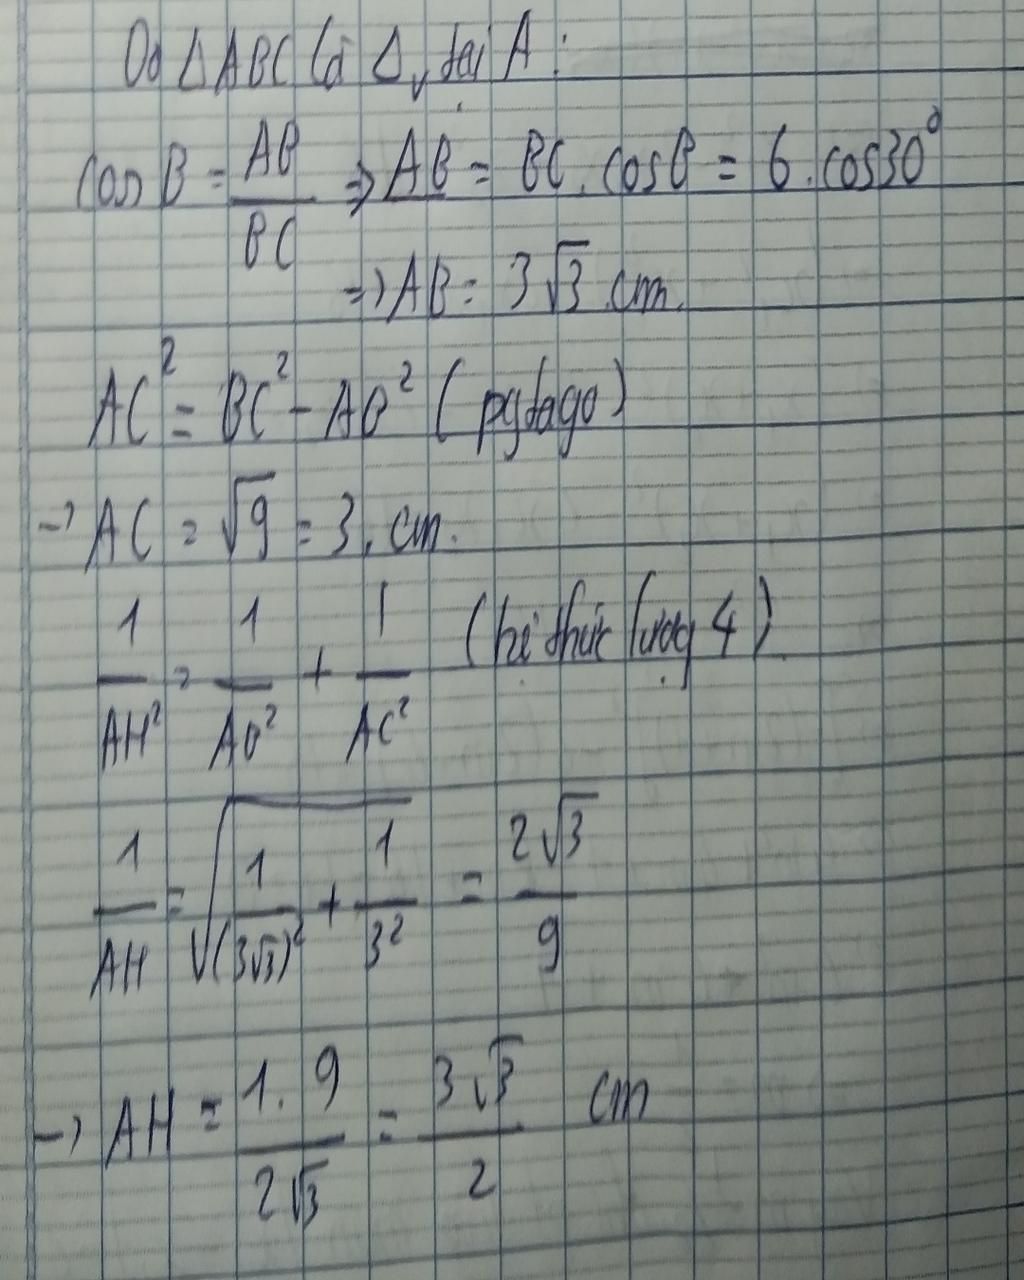 Do ΔABC là Δv tại A:
cos B = AB/BC => AB = BC . cosB = 6 . cos30°
=> AB = 3√3 cm.
AC² = BC² - AB² (pytago)
-> AC = √9 = 3 cm.
1/AH² = 1/AB² + 1/AC² (hệ thức lượng 4)
1/AH = √(1/(3√3)² + 1/3²) = 2√3/9
-> AH = 1.9/2√3 = 3√3/2 cm